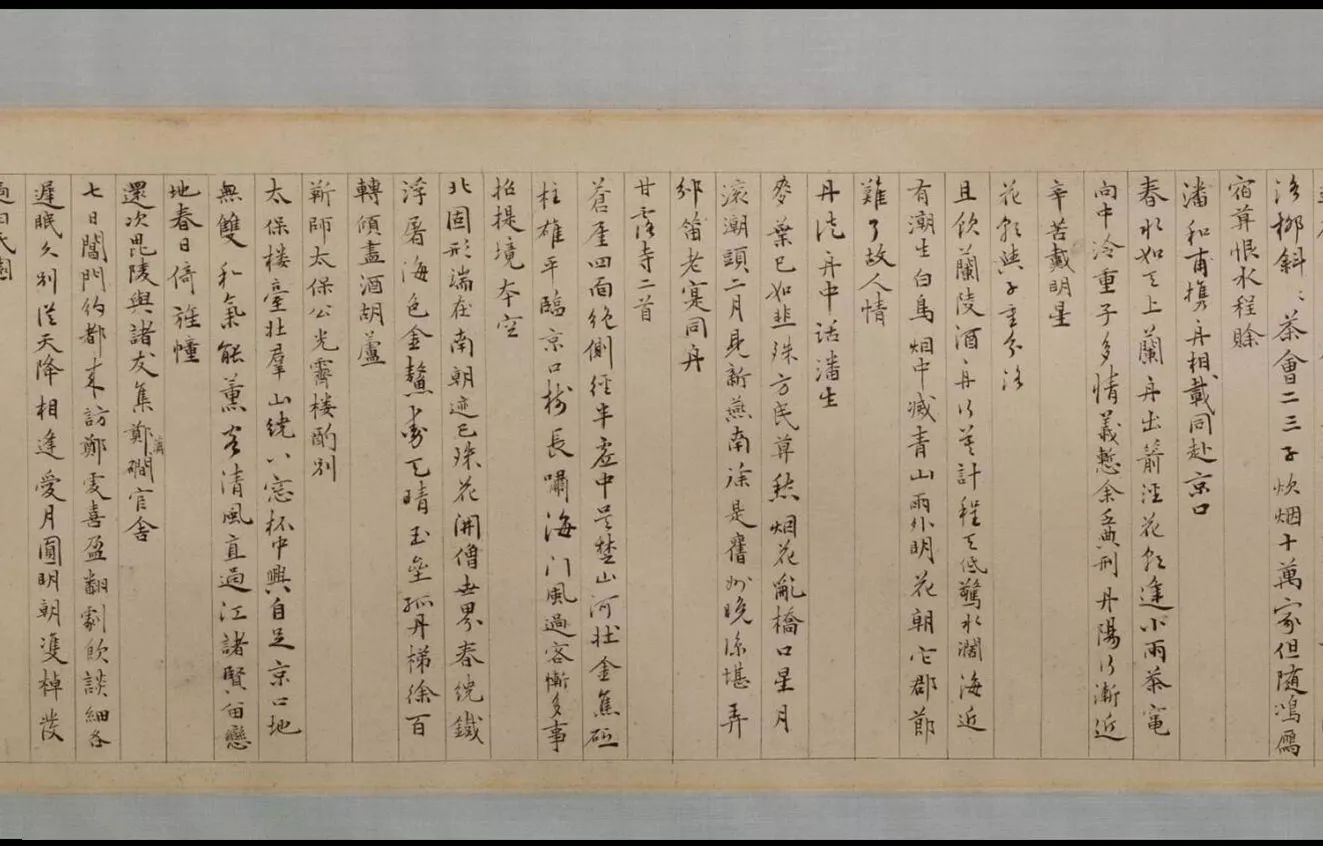 洛柳斜：茶會二三子炊烟十萬家但随鴻鴈
宿莫恨水程賒
潘和甫携舟相載同赴京口
春水如天上蘭舟出箭涇花能逢小雨茶竈
向中泠重子多情義慙余乏典刑丹陽行漸近
辛苦戴明星
花能與子重分
且飲蘭陵酒舟行莫計程天低驚水闊海近
有潮生白鳥烟中滅青山雨外明花朝它郡節
難了故人情
丹陽舟中話潘生
麥葉已如韭殊方民莫愁烟花亂橋口星月
滾潮頭二月見新燕南徐是舊州晚涼堪弄
笛老寔同舟
甘露寺二首
蒼厓四面絶側徑半虛中吳楚山河壯金焦砥
柱雄平臨京口樹長嘯海门風過客慚多事
招提境本空
北固形端在南朝迹已殊花開僧世界春繞鐵
浮屠海色金鰲天晴玉壘孤丹梯徐百
轉傾盡酒胡蘆
靳師太保公光霽樓酌別
太保樓臺壯羣山繞八窓杯中興自足京口地
無雙和氣能薰客清風直過江諸賢留戀
地春日倚旌幢
還次毘陵與諸友集鄭澗官舍
七日閶門約都來訪鄭虔喜盈翻劇飲談細各
遲眠久別從天降相逢愛月圓明朝雙棹發
過白氏園